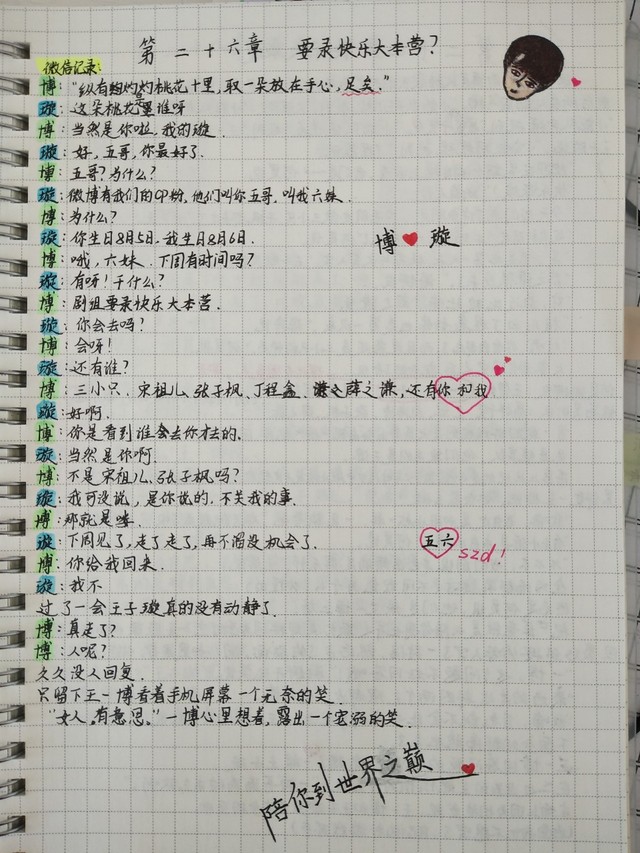 第二十六章 要录快乐大本营?
微信记录:
博:"纵有灼灼桃花十里,取一朵放在手心,足矣."
璇:这朵桃花是谁呀
博:当然是你啦,我的璇.
璇:好,五哥,你最好了.
博:五哥?为什么?
璇:微博有我们的CP粉,他们叫你五哥,叫我六妹.
博:为什么?
璇:你生日8月5日,我生日8月6日.
博❤璇
博:哦,六妹.下周有时间吗?
璇:有呀!干什么?
博:剧组要录快乐大本营.
璇:你会去吗?
博:会呀!
璇:还有谁?
博:三小只、宋祖儿、张子枫、丁程鑫、薛之谦,还有你和我
璇:好啊.
博:你是看到谁会去你才去的.
璇:当然是你啊.
博:不是宋祖儿、张子枫吗?
璇:我可没说,是你说的,不关我的事.
博:那就是喽.
璇:下周见了,走了走了,再不溜没机会了.
五六szd!
博:你给我回来.
璇:我不
过了一会王子璇真的没有动静了.
博:真走了?
博:人呢?
久久没人回复.
只留下王一博看着手机屏幕一个无奈的笑.
"女人,有意思."一博心里想着,露出一个宠溺的笑.
陪你到世界之巅❤